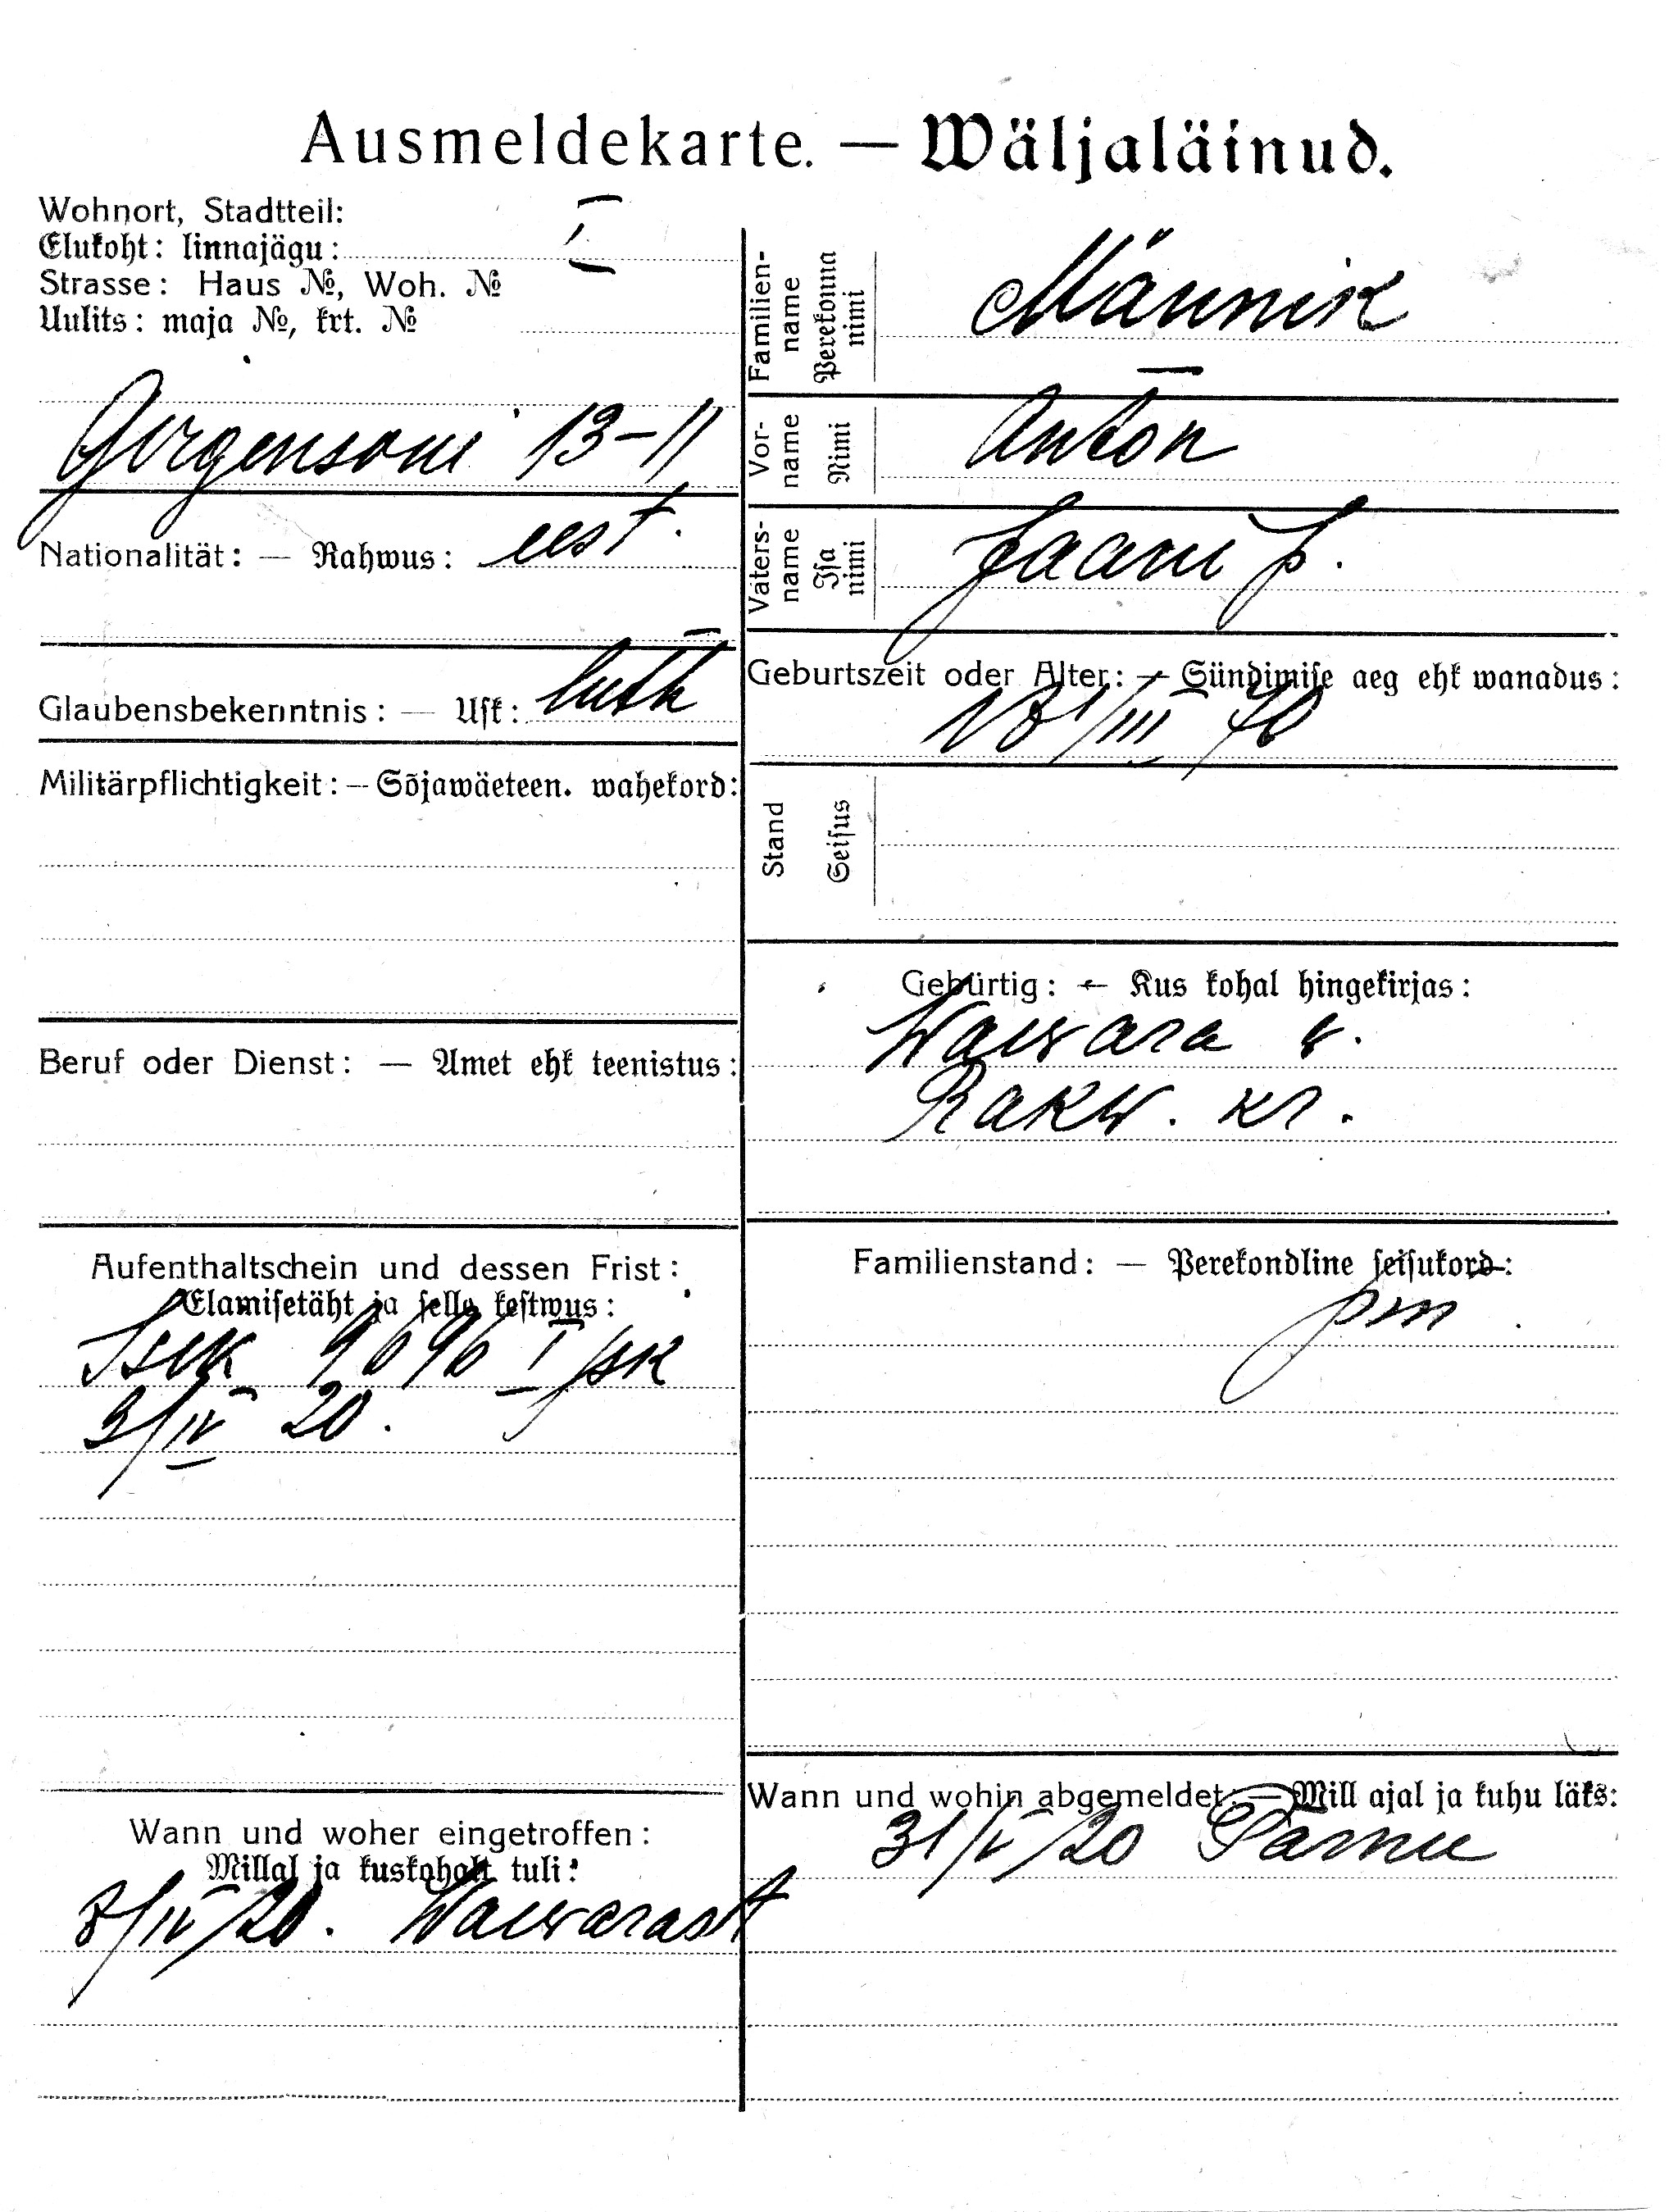 Ausmeldekarte. — Wäljaläinud.
Wohnort, Stadtteil:
Elukoht: linnajägu: I
Strasse: Haus №, Woh. №
Uulits: maja №, krt. №
Girgensoni 13-11
Nationalität: — Rahwus: eest.
Glaubensbekenntnis: — Usk: luth
Militärpflichtigkeit: — Sõjawäeteen. wahekord:
Beruf oder Dienst: — Amet ehk teenistus:
Aufenthaltschein und dessen Frist:
Elamisetäht ja selle kestwus:
9696 I jsk
3/IV 20.
Wann und woher eingetroffen:
Millal ja kuskohalt tuli:
8/IV 20. Waiwarast
Familien-
name
Perekonna
nimi
Männik
Vor-
name
Nimi
Anton
Vaters-
name
Isa
nimi
Jaani p.
Geburtszeit oder Alter: — Sündimise aeg ehk wanadus:
18/III 70
Stand
Seisus
Gebürtig: — Kus kohal hingekirjas:
Waiwara w.
Rakw. kr.
Familienstand: — Perekondline seisukord:
pm
Wann und wohin abgemeldet: — Mill ajal ja kuhu läks:
31/V 20 Pärnu